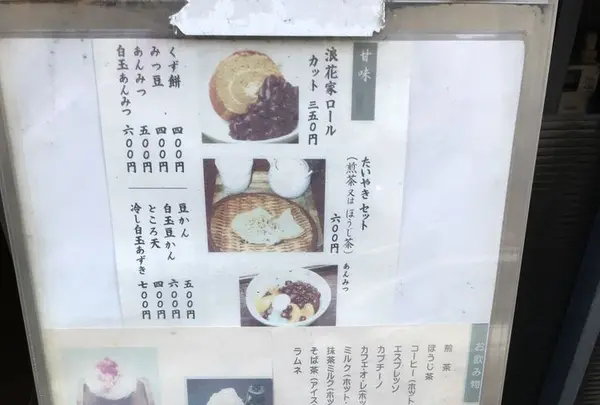 甘味
浪花家ロール
カット 三五〇円
たいやきセット
(煎茶又はほうじ茶)
六〇〇円
あんみつ
くず餅 四〇〇円
みつ豆 四〇〇円
あんみつ 五〇〇円
白玉あんみつ 六〇〇円
豆かん 五〇〇円
白玉豆かん 六〇〇円
ところ天 四〇〇円
冷し白玉あずき 七〇〇円
お飲み物
煎茶
ほうじ茶
コーヒー(ホット
エスプレッソ
カプチーノ
カフェオレ(ホッ
ミルク(ホット・
抹茶ミルク(ホッ
そば茶(アイス
ラムネ